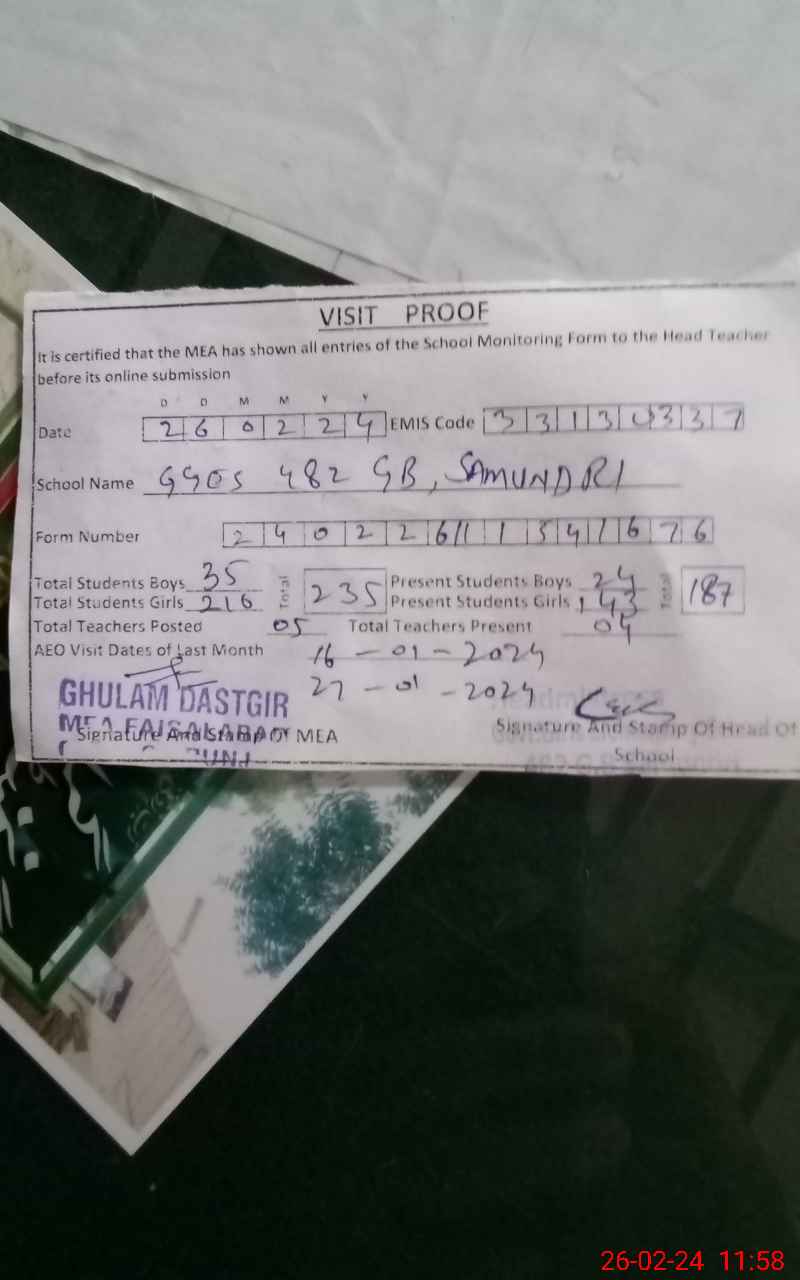 VISIT PROOF
It is certified that the MEA has shown all entries of the School Monitoring Form to the Head Teacher
before its online submission
D D M M Y Y
Date 260224 EMIS Code 33130337
School Name GGES 482 GB, SAMUNDRI
Form Number
Total Students Boys 35 Total 235 Present Students Boys 24 Total 187
Total Students Girls 216 Present Students Girls 143
Total Teachers Posted 05 Total Teachers Present 04
AEO Visit Dates of Last Month 16-01-2024
27-01-2024
GHULAM DASTGIR
MEA FAISALABAD
Signature And Stamp Of MEA
Signature And Stamp Of Head Of
School
26-02-24 11:58